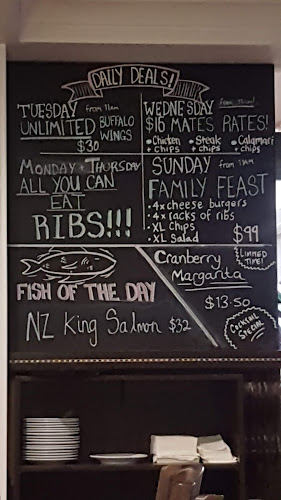 DAILY DEALS!
TUESDAY from 11am
UNLIMITED BUFFALO WINGS
$30
WEDNESDAY from 11am!
$16 MATES RATES!
• Chicken + chips • Steak + chips • Calamari + chips
MONDAY + THURSDAY
ALL YOU CAN
EAT
RIBS!!!
SUNDAY from 11am
FAMILY FEAST
• 4x cheese burgers
• 4x racks of ribs
• XL Chips
• XL Salad
$99
LIMITED TIME!
FISH OF THE DAY
NZ King Salmon $32
Cranberry
Margarita
$13.50
COCKTAIL SPECIAL